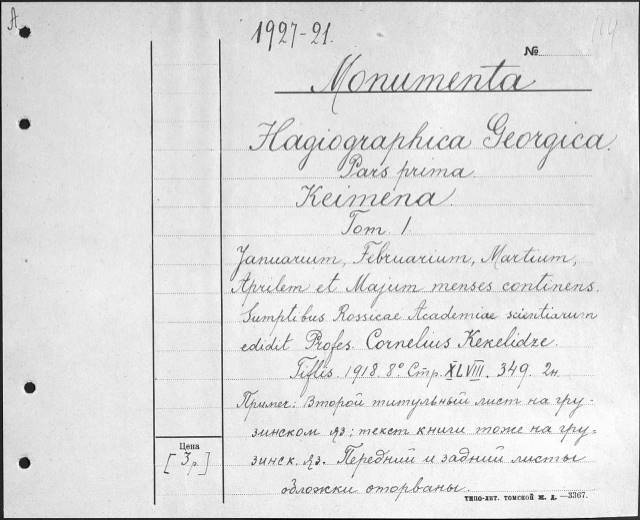 A
1927-21.
114
№
Monumenta
Hagiographica Georgica.
Pars prima.
Keimena.
Tom. I
Januarium, Februarium, Martium,
Aprilem et Majum menses continens.
Sumptibus Rossicae Academiae scientiarum
edidit Profes. Cornelius Kekelidze.
Tiflis. 1918. 8° Стр. XLVIII. 349. 2н.
Примеч: Второй титульный лист на гру-
зинском яз; текст книги тоже на гру-
зинск. яз. Передний и задний листы
обложки оторваны.
Цена
[3р.]
ТИПО-ЛИТ. ТОМСКОЙ Ж. Д. —3367.